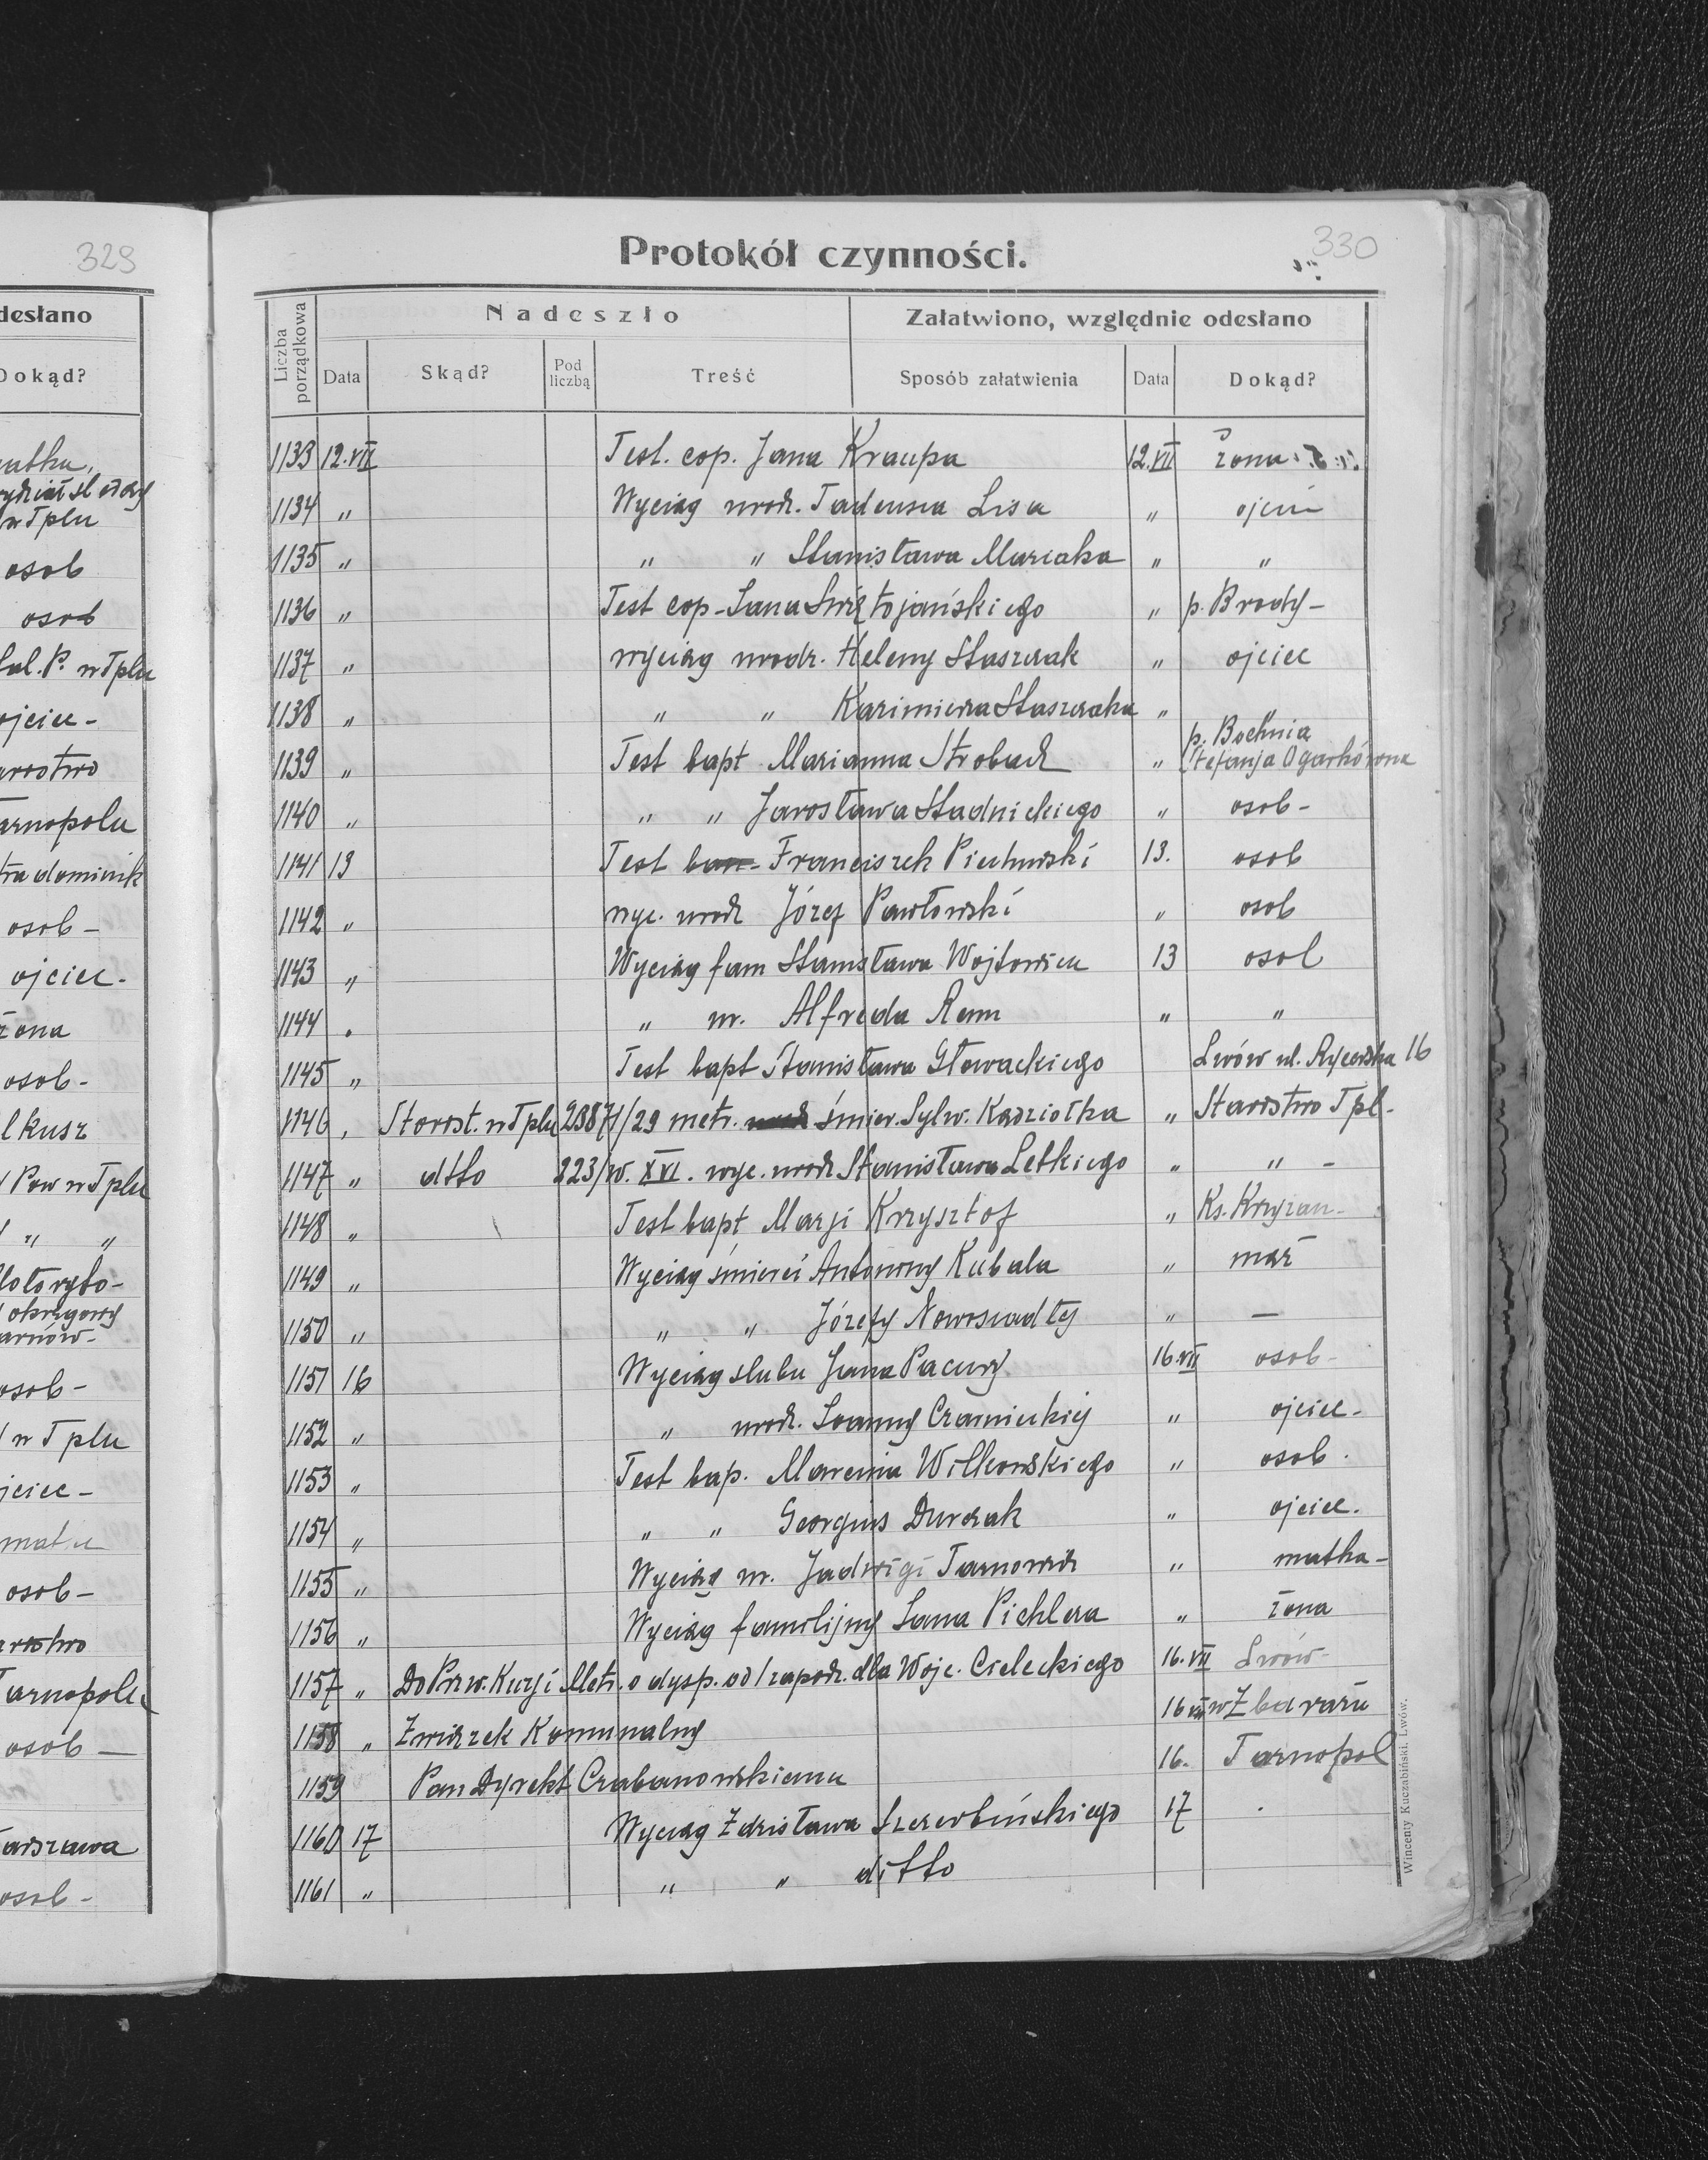 329
desłano
Dokąd?
w Tplu
osob
osob
Pal. P. w Tplu
ojciec -
arostwo
arnopolu
tra dominik
osob -
ojciec -
żona
osob -
lkusz
Pow w Tplu
" "
okręgowy
arnów -
osob -
w Tplu
jciec -
osob -
arostwo
Tarnopolu
osob —
arszawa
osob -
330
Protokół czynności.
Liczba porządkowa
Nadeszło
Załatwiono, względnie odesłano
Data Skąd? Pod liczbą Treść Sposób załatwienia Data Dokąd?
1133 12.VII Test. cop. Jana Kraupa 12.VII żona
1134 " Wyciąg urodz. Tadeusza Lisa " ojciec
1135 " " " Stanisława Marcaka " "
1136 " Test cop - Jana Świętojańskiego " p. Brody -
1137 " wyciąg urodz. Heleny Staszczak " ojciec
1138 " " " Kazimierza Staszczaka " "
1139 " Test bapt Marianna Strobach " p. Bochnia Stefanja Ogarkówna
1140 " " " Jarosława Stadnickiego " osob -
1141 13 Test Franciszek Piechurski 13. osob
1142 " wyc. urodz Józef Pawłowski " osob
1143 " Wyciąg fam Stanisława Wojtowicza 13 osob
1144 . " ur. Alfreda Rem " "
1145 " Test bapt Stanisława Głowackiego Lwów ul. Rycerska 16
1146 , Starost. w Tplu 23871/29 metr. śmier. Sylw. Kadziołka " Starostwo Tpl -
1147 " dtto 223/w. XVI. wyc. urodz. Stanisława Letkiego " " -
1148 " Test bapt Marji Krzysztof " Ks. Krzyzan -
1149 " Wyciąg śmierci Antoniny Kubala " mąż
1150 " " " Józefy Nowosiadłej " —
1151 16 Wyciąg slubu Jana Pacury 16.VII osob -
1152 " " urodz. Joanny Czarnieckiej " ojciec -
1153 " Test bap. Marcina Wilkowskiego " osob.
1154 " " " Georgius Durczak " ojciec.
1155 " Wyciąg ur. Jadwigi Tarnowicz " matka -
1156 " Wyciąg familijny Jana Pichlera " żona
1157 " Do Prze. Kurji Metr. o dysp. od 1 zapodz. dla Wojc. Cieleckiego 16.VII Lwów -
1158 " Związek Komunalny 16 VII w Zbarażu
1159 Pan Dyrekt Czabanowskiemu 16. Tarnopol
1160 17 Wyciąg Zdzisława Szczerbińskiego 17 .
1161 " " " ditto
Wincenty Kuczabiński. Lwów.